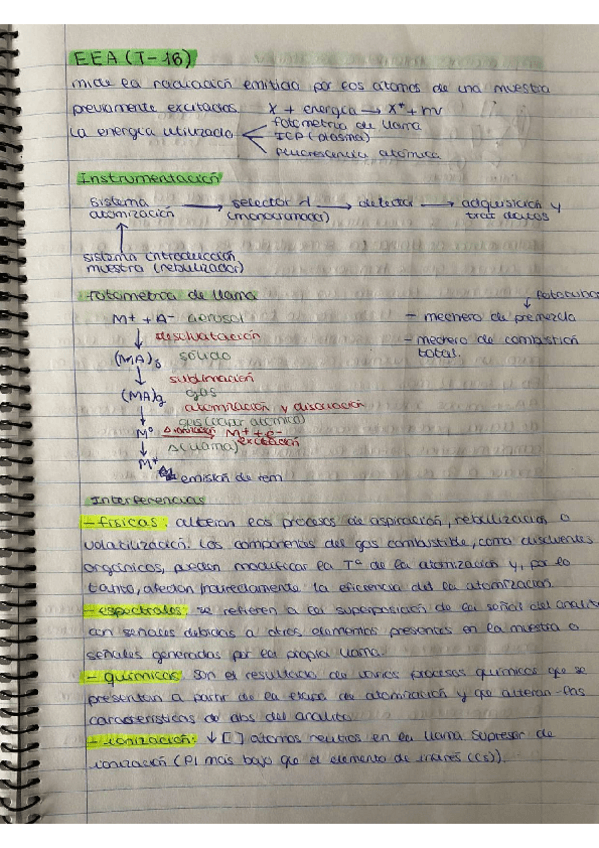 EEA (T-16)
mide la radiación emitida por los átomos de una muestra
previamente excitados X + energía → X* + hv
la energía utilizada
fotometría de llama
ICP (plasma)
fluorescencia atómica
Instrumentación
sistema atomización → selector λ (monocromador) → detector → adquisición y trat datos
sistema introducción
muestra (nebulizador)
fotometría de llama
M+ + A- aerosol
desolvatación
(MA)s sólido
sublimación
(MA)g gas
atomización y disociación
M° ionización M+ + e-
excitación
Δ (llama)
M*
emisión de rem
- mechero de premezcla
- mechero de combustión
total.
Interferencias
- físicas: alteran los procesos de aspiración, nebulización o
volatilización. Los componentes del gas combustible, como disolventes
orgánicos, pueden modificar la Tº de la atomización y, por lo
tanto, afectan indirectamente la eficiencia del la atomización.
- espectrales: se refieren a la superposición de la señal del analito
con señales debidas a otros elementos presentes en la muestra o
señales generadas por la propia llama.
- químicas: son el resultado de varios procesos químicos que se
presentan a partir de la etapa de atomización y que alteran las
características de abs del analito.
- ionización: ↓ [ ] átomos neutros en la llama. Supresor de
ionización (PI más bajo que el elemento de interés (Cs)).